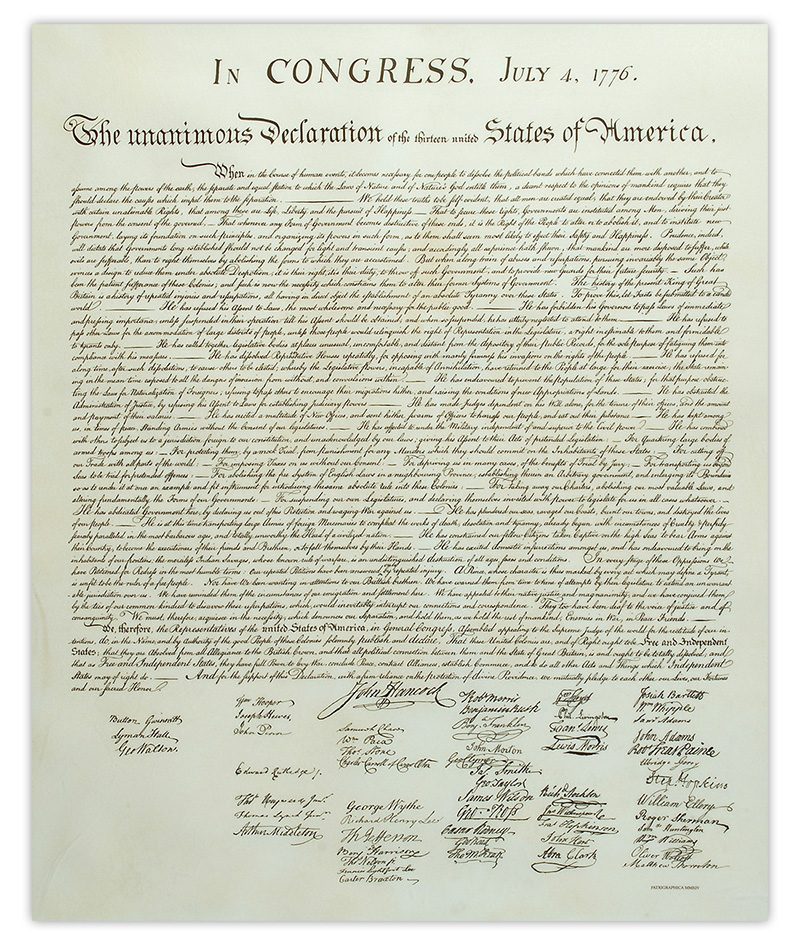 IN CONGRESS. JULY 4, 1776.
The unanimous Declaration of the thirteen united States of America.
When in the Course of human events, it becomes necessary for one people to dissolve the political bands which have connected them with another, and to
assume among the powers of the earth, the separate and equal station to which the Laws of Nature and of Nature's God entitle them, a decent respect to the opinions of mankind requires that they
should declare the causes which impel them to the separation. — We hold these truths to be self-evident, that all men are created equal, that they are endowed by their Creator
with certain unalienable Rights, that among these are Life, Liberty and the pursuit of Happiness. — That to secure these rights, Governments are instituted among Men, deriving their just
powers from the consent of the governed, — That whenever any Form of Government becomes destructive of these ends, it is the Right of the People to alter or to abolish it, and to institute new
Government, laying its foundation on such principles, and organizing its powers in such form, as to them shall seem most likely to effect their Safety and Happiness. Prudence, indeed,
will dictate that Governments long established should not be changed for light and transient causes; and accordingly all experience hath shewn, that mankind are more disposed to suffer, while
evils are sufferable, than to right themselves by abolishing the forms to which they are accustomed. But when a long train of abuses and usurpations, pursuing invariably the same Object
evinces a design to reduce them under absolute Despotism, it is their right, it is their duty, to throw off such Government, and to provide new Guards for their future security. — Such has
been the patient sufferance of these Colonies; and such is now the necessity which constrains them to alter their former Systems of Government. The history of the present King of Great
Britain is a history of repeated injuries and usurpations, all having in direct object the establishment of an absolute Tyranny over these States. To prove this, let Facts be submitted to a candid
world. — He has refused his Assent to Laws, the most wholesome and necessary for the public good. — He has forbidden his Governors to pass Laws of immediate
and pressing importance, unless suspended in their operation till his Assent should be obtained; and when so suspended, he has utterly neglected to attend to them. — He has refused to
pass other Laws for the accommodation of large districts of people, unless those people would relinquish the right of Representation in the Legislature, a right inestimable to them and formidable
to tyrants only. — He has called together legislative bodies at places unusual, uncomfortable, and distant from the depository of their public Records, for the sole purpose of fatiguing them into
compliance with his measures. — He has dissolved Representative Houses repeatedly, for opposing with manly firmness his invasions on the rights of the people. — He has refused for
a long time, after such dissolutions, to cause others to be elected; whereby the Legislative powers, incapable of Annihilation, have returned to the People at large for their exercise; the State remain-
ing in the mean time exposed to all the dangers of invasion from without, and convulsions within. — He has endeavoured to prevent the population of these States; for that purpose obstruc-
ting the Laws for Naturalization of Foreigners; refusing to pass others to encourage their migrations hither, and raising the conditions of new Appropriations of Lands. — He has obstructed the
Administration of Justice, by refusing his Assent to Laws for establishing Judiciary powers. — He has made Judges dependent on his Will alone, for the tenure of their offices, and the amount
and payment of their salaries. — He has erected a multitude of New Offices, and sent hither swarms of Officers to harrass our people, and eat out their substance. — He has kept among
us, in times of peace, Standing Armies without the Consent of our legislatures. — He has affected to render the Military independent of and superior to the Civil power. — He has combined
with others to subject us to a jurisdiction foreign to our constitution, and unacknowledged by our laws; giving his Assent to their Acts of pretended Legislation: — For Quartering large bodies of
armed troops among us: — For protecting them, by a mock Trial, from punishment for any Murders which they should commit on the Inhabitants of these States: — For cutting off
our Trade with all parts of the world: — For imposing Taxes on us without our Consent: — For depriving us in many cases, of the benefits of Trial by Jury: — For transporting us beyond
Seas to be tried for pretended offences — For abolishing the free System of English Laws in a neighbouring Province, establishing therein an Arbitrary government, and enlarging its Boundaries
so as to render it at once an example and fit instrument for introducing the same absolute rule into these Colonies: — For taking away our Charters, abolishing our most valuable Laws, and
altering fundamentally the Forms of our Governments: — For suspending our own Legislatures, and declaring themselves invested with power to legislate for us in all cases whatsoever. —
He has abdicated Government here, by declaring us out of his Protection and waging War against us. — He has plundered our seas, ravaged our Coasts, burnt our towns, and destroyed the lives
of our people. — He is at this time transporting large Armies of foreign Mercenaries to compleat the works of death, desolation and tyranny, already begun with circumstances of Cruelty & perfidy
scarcely paralleled in the most barbarous ages, and totally unworthy the Head of a civilized nation. — He has constrained our fellow Citizens taken Captive on the high Seas to bear Arms against
their Country, to become the executioners of their friends and Brethren, or to fall themselves by their Hands. — He has excited domestic insurrections amongst us, and has endeavoured to bring on the
inhabitants of our frontiers, the merciless Indian Savages, whose known rule of warfare, is an undistinguished destruction of all ages, sexes and conditions. In every stage of these Oppressions We
have Petitioned for Redress in the most humble terms: Our repeated Petitions have been answered only by repeated injury. A Prince, whose character is thus marked by every act which may define a Tyrant,
is unfit to be the ruler of a free people. Nor have We been wanting in attentions to our Brittish brethren. We have warned them from time to time of attempts by their legislature to extend an unwarrant-
able jurisdiction over us. We have reminded them of the circumstances of our emigration and settlement here. We have appealed to their native justice and magnanimity, and we have conjured them
by the ties of our common kindred to disavow these usurpations, which, would inevitably interrupt our connections and correspondence. They too have been deaf to the voice of justice and of
consanguinity. We must, therefore, acquiesce in the necessity, which denounces our Separation, and hold them, as we hold the rest of mankind, Enemies in War, in Peace Friends. —
We, therefore, the Representatives of the united States of America, in General Congress, Assembled, appealing to the Supreme Judge of the world for the rectitude of our in-
tentions, do, in the Name, and by Authority of the good People of these Colonies, solemnly publish and declare, That these United Colonies are, and of Right ought to be Free and Independent
States; that they are Absolved from all Allegiance to the British Crown, and that all political connection between them and the State of Great Britain, is and ought to be totally dissolved; and
that as Free and Independent States, they have full Power to levy War, conclude Peace, contract Alliances, establish Commerce, and to do all other Acts and Things which Independent
States may of right do. — And for the support of this Declaration, with a firm reliance on the protection of divine Providence, we mutually pledge to each other our Lives, our Fortunes
and our sacred Honor.
Button Gwinnett
Lyman Hall
Geo Walton.
Wm Hooper
Joseph Hewes,
John Penn
Edward Rutledge /.
Thos Heyward Junr.
Thomas Lynch Junr.
Arthur Middleton
John Hancock
Samuel Chase
Wm Paca
Thos Stone
Charles Carroll of Carrollton
George Wythe
Richard Henry Lee
Th Jefferson
Benj Harrison
Thos Nelson jr.
Francis Lightfoot Lee
Carter Braxton
Robt Morris
Benjamin Rush
Benj. Franklin
John Morton
Geo Clymer
Jas Smith
Geo Taylor
James Wilson
Geo. Ross
Caesar Rodney
Geo Read
Tho M:Kean
Wm Floyd
Phil. Livingston
Frans Lewis
Lewis Morris
Richd Stockton
Jno Witherspoon
Fras Hopkinson
John Hart
Abra Clark
Josiah Bartlett
Wm Whipple
Saml Adams
John Adams
Robt Treat Paine
Elbridge Gerry
Step. Hopkins
William Ellery
Roger Sherman
Saml Huntington
Wm Williams
Oliver Wolcott
Matthew Thornton
PATRIGRAPHICA MMXIV